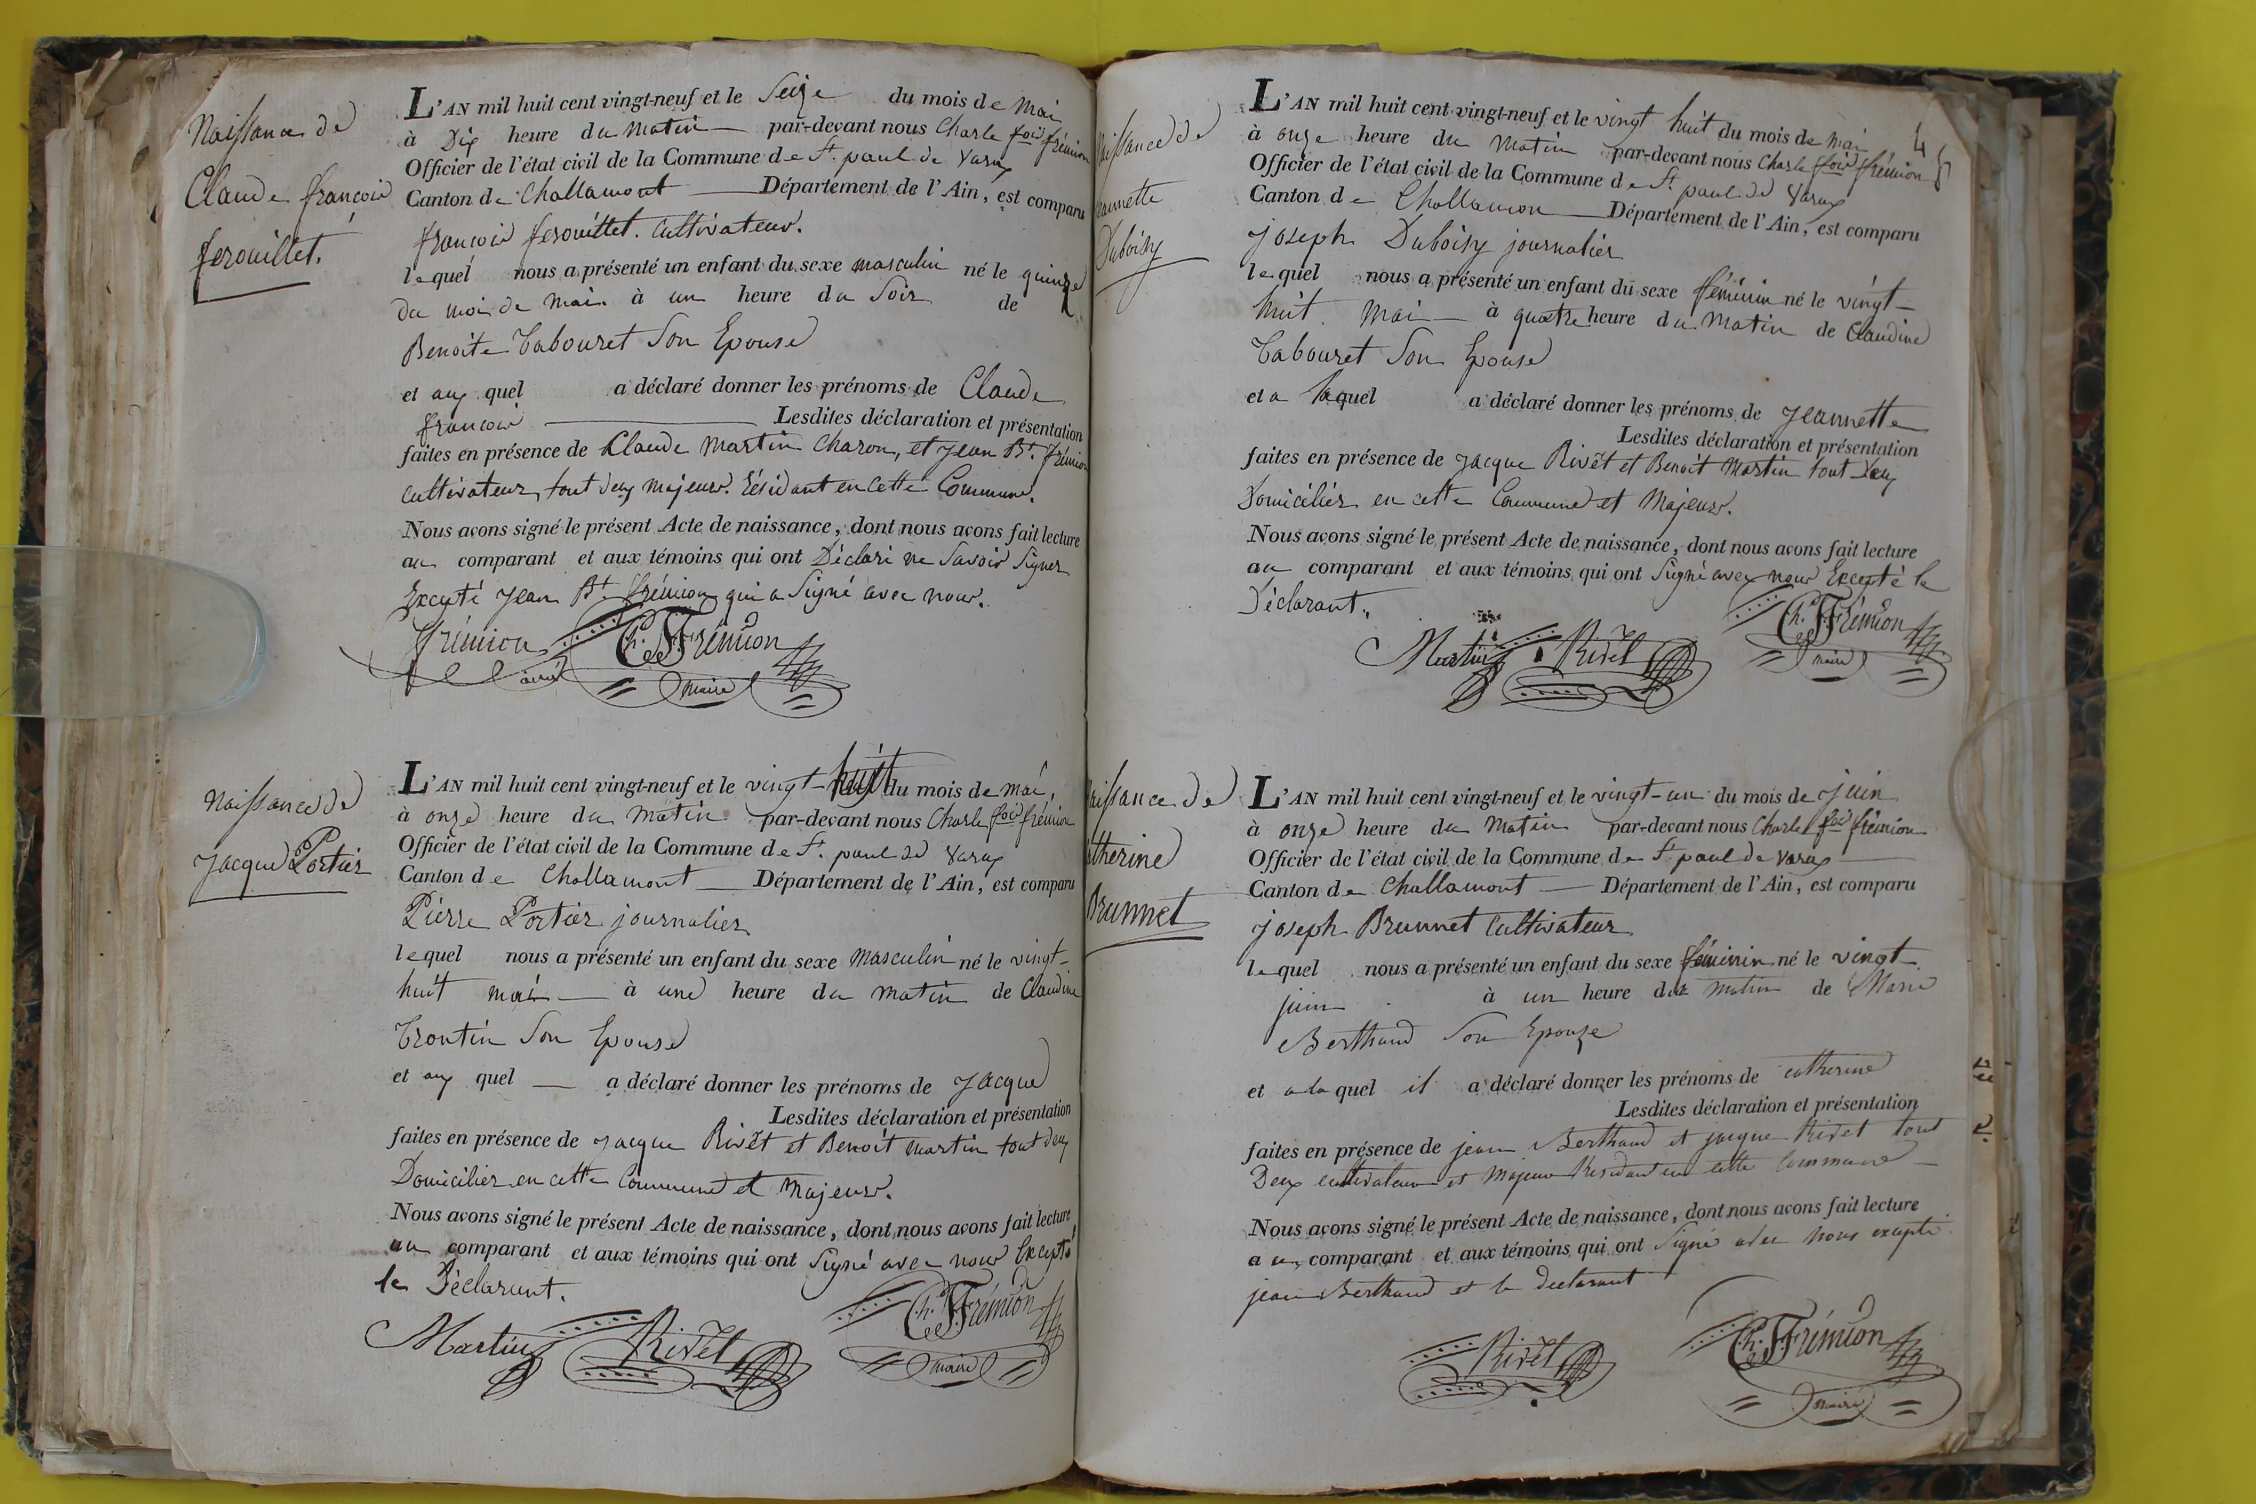 Naissance de
Claude françois
ferouillet.
L'AN mil huit cent vingt-neuf et le Seize du mois de Mai
à Dix heure du Matin par-devant nous Charle fois frémion
Officier de l'état civil de la Commune de St. paul de Varax
Canton de Challamont Département de l'Ain, est comparu
françois ferouillet. Cultivateur.
lequel nous a présenté un enfant du sexe masculin né le quinze
du moi de Mai à un heure du Soir de
Benoite Tabouret Son Epouse
et auquel a déclaré donner les prénoms de Claude
françois Lesdites déclaration et présentation
faites en présence de Claude Martin Charon, et Jean Bt. frémion
cultivateur, tout deux Majeur. Résidant en cette Commune.
Nous avons signé le présent Acte de naissance, dont nous avons fait lecture
au comparant et aux témoins qui ont Déclaré ne Savoir Signer
Excepté Jean Bt. frémion qui a Signé avec nous.
frémion Ch. F. Frémion
maire
Naissance de
Jacque Portier
L'AN mil huit cent vingt-neuf et le vingt-huit du mois de mai,
à onze heure du Matin par-devant nous Charle fois frémion
Officier de l'état civil de la Commune de St. paul de Varax
Canton de Challamont Département de l'Ain, est comparu
Pierre Portier journalier
lequel nous a présenté un enfant du sexe Masculin né le vingt-
huit mai à une heure du matin de Claudine
Trontin Son Epouse
et auxquel a déclaré donner les prénoms de Jacque
Lesdites déclaration et présentation
faites en présence de Jacque Rivet et Benoit Martin tout deux
Domiciliés en cette Commune et Majeur.
Nous avons signé le présent Acte de naissance, dont nous avons fait lecture
au comparant et aux témoins qui ont Signé avec nous Excepté
le Déclarant.
Martin Rivet Ch. F. Frémion
maire
4
Naissance de
Jeannette
Duboisy
L'AN mil huit cent vingt-neuf et le vingt huit du mois de Mai
à onze heure du Matin par-devant nous Charle fois frémion
Officier de l'état civil de la Commune de St. paul de Varax
Canton de Challamon Département de l'Ain, est comparu
Joseph Duboisy journalier
lequel nous a présenté un enfant du sexe féminin né le vingt-
huit Mai à quatre heure du Matin de Claudine
Tabouret Son Epouse
et a laquel a déclaré donner les prénoms de Jeannette
Lesdites déclaration et présentation
faites en présence de Jacque Rivet et Benoit Martin tout deux
Domiciliés en cette Commune et Majeur.
Nous avons signé le présent Acte de naissance, dont nous avons fait lecture
au comparant et aux témoins qui ont Signé avec nous Excepté le
Déclarant.
Martin Rivet Ch. F. Frémion
maire
Naissance de
Catherine
Brunnet
L'AN mil huit cent vingt-neuf et le vingt-un du mois de juin
à onze heure du Matin par-devant nous Charle fois frémion
Officier de l'état civil de la Commune de St. paul de Varax
Canton de Challamont Département de l'Ain, est comparu
Joseph Brunnet Cultivateur
lequel nous a présenté un enfant du sexe féminin né le vingt
juin à un heure du matin de Marie
Berthaud Son Epouze
et a laquel il a déclaré donner les prénoms de catherine
Lesdites déclaration et présentation
faites en présence de jean Berthaud et jacque Rivet tout
Deux cultivateur et Majeur Residant en cette Commune
Nous avons signé le présent Acte de naissance, dont nous avons fait lecture
au comparant et aux témoins qui ont Signé avec nous excepté
jean Berthaud et le declarant
Rivet Ch. F. Frémion
maire